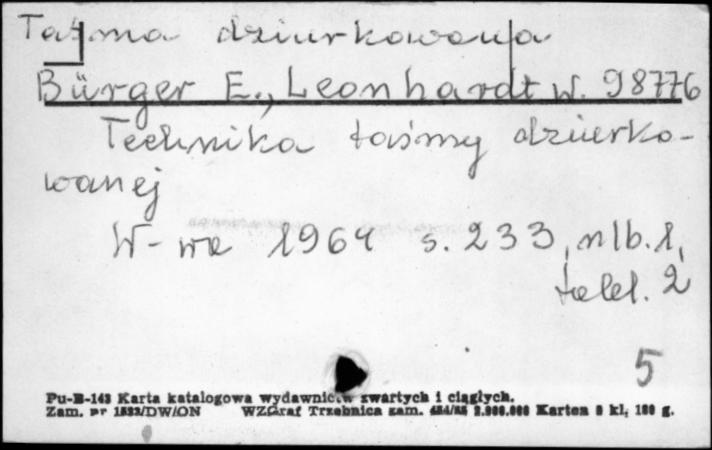 Taśma dziurkowana
Bürger E., Leonhardt W. 98776
Technika taśmy dziurko-
wanej
W-wa 1964 s. 233, nlb. 1,
tabl. 2
5
Pu-B-143 Karta katalogowa wydawnictw zwartych i ciągłych.
Zam. nr /DW/ON WZGraf Trzebnica zam. 2.000.000 Karton kl. 180 g.